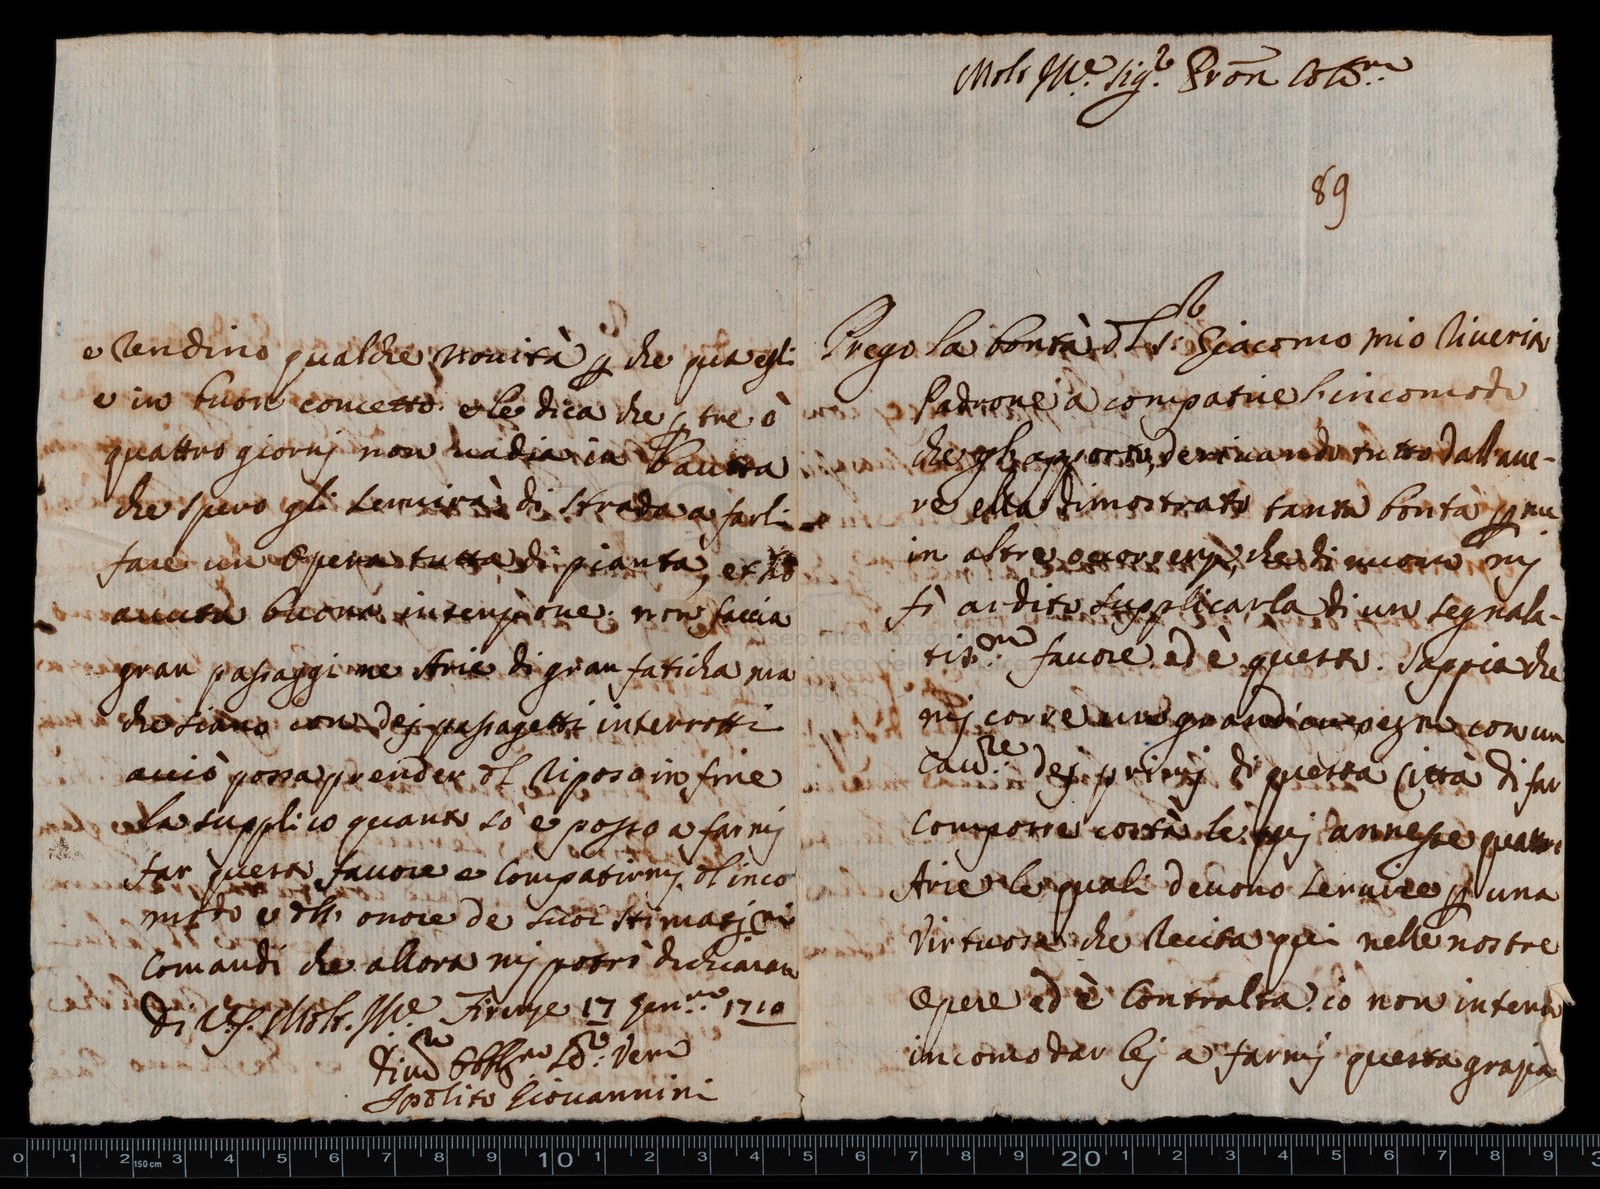 Molt Ill.re Sig.r Pron Col.mo
89
Prego la bontà del S.r Giacomo mio Riverito
Padrone à compatire l'incomodo
che gli apporto, derivando tutto dall'aue-
re ella dimostrato tanta bontà per me
in altre occorrenze, che di nuouo mi
fò ardito supplicarla di un segnala-
tiss.mo fauore. ed è questo. Sappia che
mi corre un grand'impegno con un
Cau.re dei primi di questa Città di far
comporre costà le qui annesse quattro
Arie le quali deuono seruire per una
Virtuosa che Recita qui nelle nostre
Opere ed è Contralta. io non intendo
incomodar lei a farmi questa grazia
e Rendino qualche nouità per che qua egli
e in buon concetto. e le dica che per tre ò
quattro giorni non uadia in Bautta
che spero gli seruirà di strada a farli
fare un Opera tutta di pianta, et hò
auuta buona intenzione. non faccia
gran passaggi ne Arie di gran faticha ma
che siano con dei passagetti interrotti
acciò possa prender del Riposo in fine
la supplico quanto sò e posso a farmi
far questo fauore e Compatirmi del inco
modo e dell' onore de suoi stimatiss.mi
Comandi che allora mi potrò dichiarare
Di V.S. Molt. Ill.re Firenze 17 Genn.ro 1710
Diu.mo Obblig.mo Se.re Vero
Ipolito Giouannini